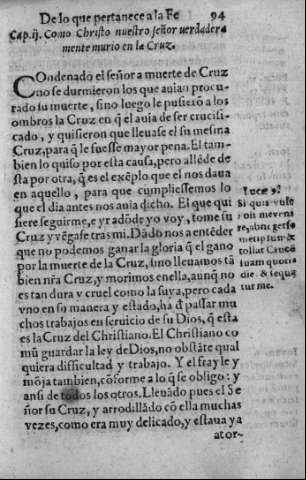 De lo que pertanece a la Fe 94
Cap.ij. Como Christo nuestro señor verdadera
mente murio en la Cruz.
COndenado el señor a muerte de Cruz
no se durmieron los que auiã procu-
rado su muerte, sino luego le pusierõ a los
ombros la Cruz en q̃ el auia de ser crucifi-
cado, y quisieron que lleuase el su mesma
Cruz, para q̃ le fuesse mayor pena. El tam-
bien lo quiso por esta causa, pero allẽde de
sta por otra, q̃ es el exẽplo que el nos daua
en aquello, para que cumpliessemos lo
que el dia antes nos auia dicho. El que qui
siere seguirme, e yr adõde yo voy, tome su
Cruz y vẽgase tras mi. Dãdo nos a entẽder
que no podemos ganar la gloria q̃ el gano
por la muerte de la Cruz, sino lleuamos tã
bien nr̃a Cruz, y morimos enella, aunq̃ no
es tan dura y cruel como la suya, pero cada
vno en su manera y estado, ha d̃ passar mu
chos trabajos en seruicio de su Dios, q̃ esta
es la Cruz del Christiano. El Christiano co
mũ guardar la ley de Dios, no obstãte qual
quiera difficultad y trabajo. Y el frayle y
mõja tambien, cõforme a lo q̃ se obligo: y
ansi de todos los otros. Lleuãdo pues el Se
ñor su Cruz, y arrodillãdo cõ ella muchas
vezes, como era muy delicado, y estaua ya
ator-
Luce 9.
Si quis vult
post me veni
re, abneget se
metipsum &
tollat Crucẽ
suam quoti
die & sequa
tur me.